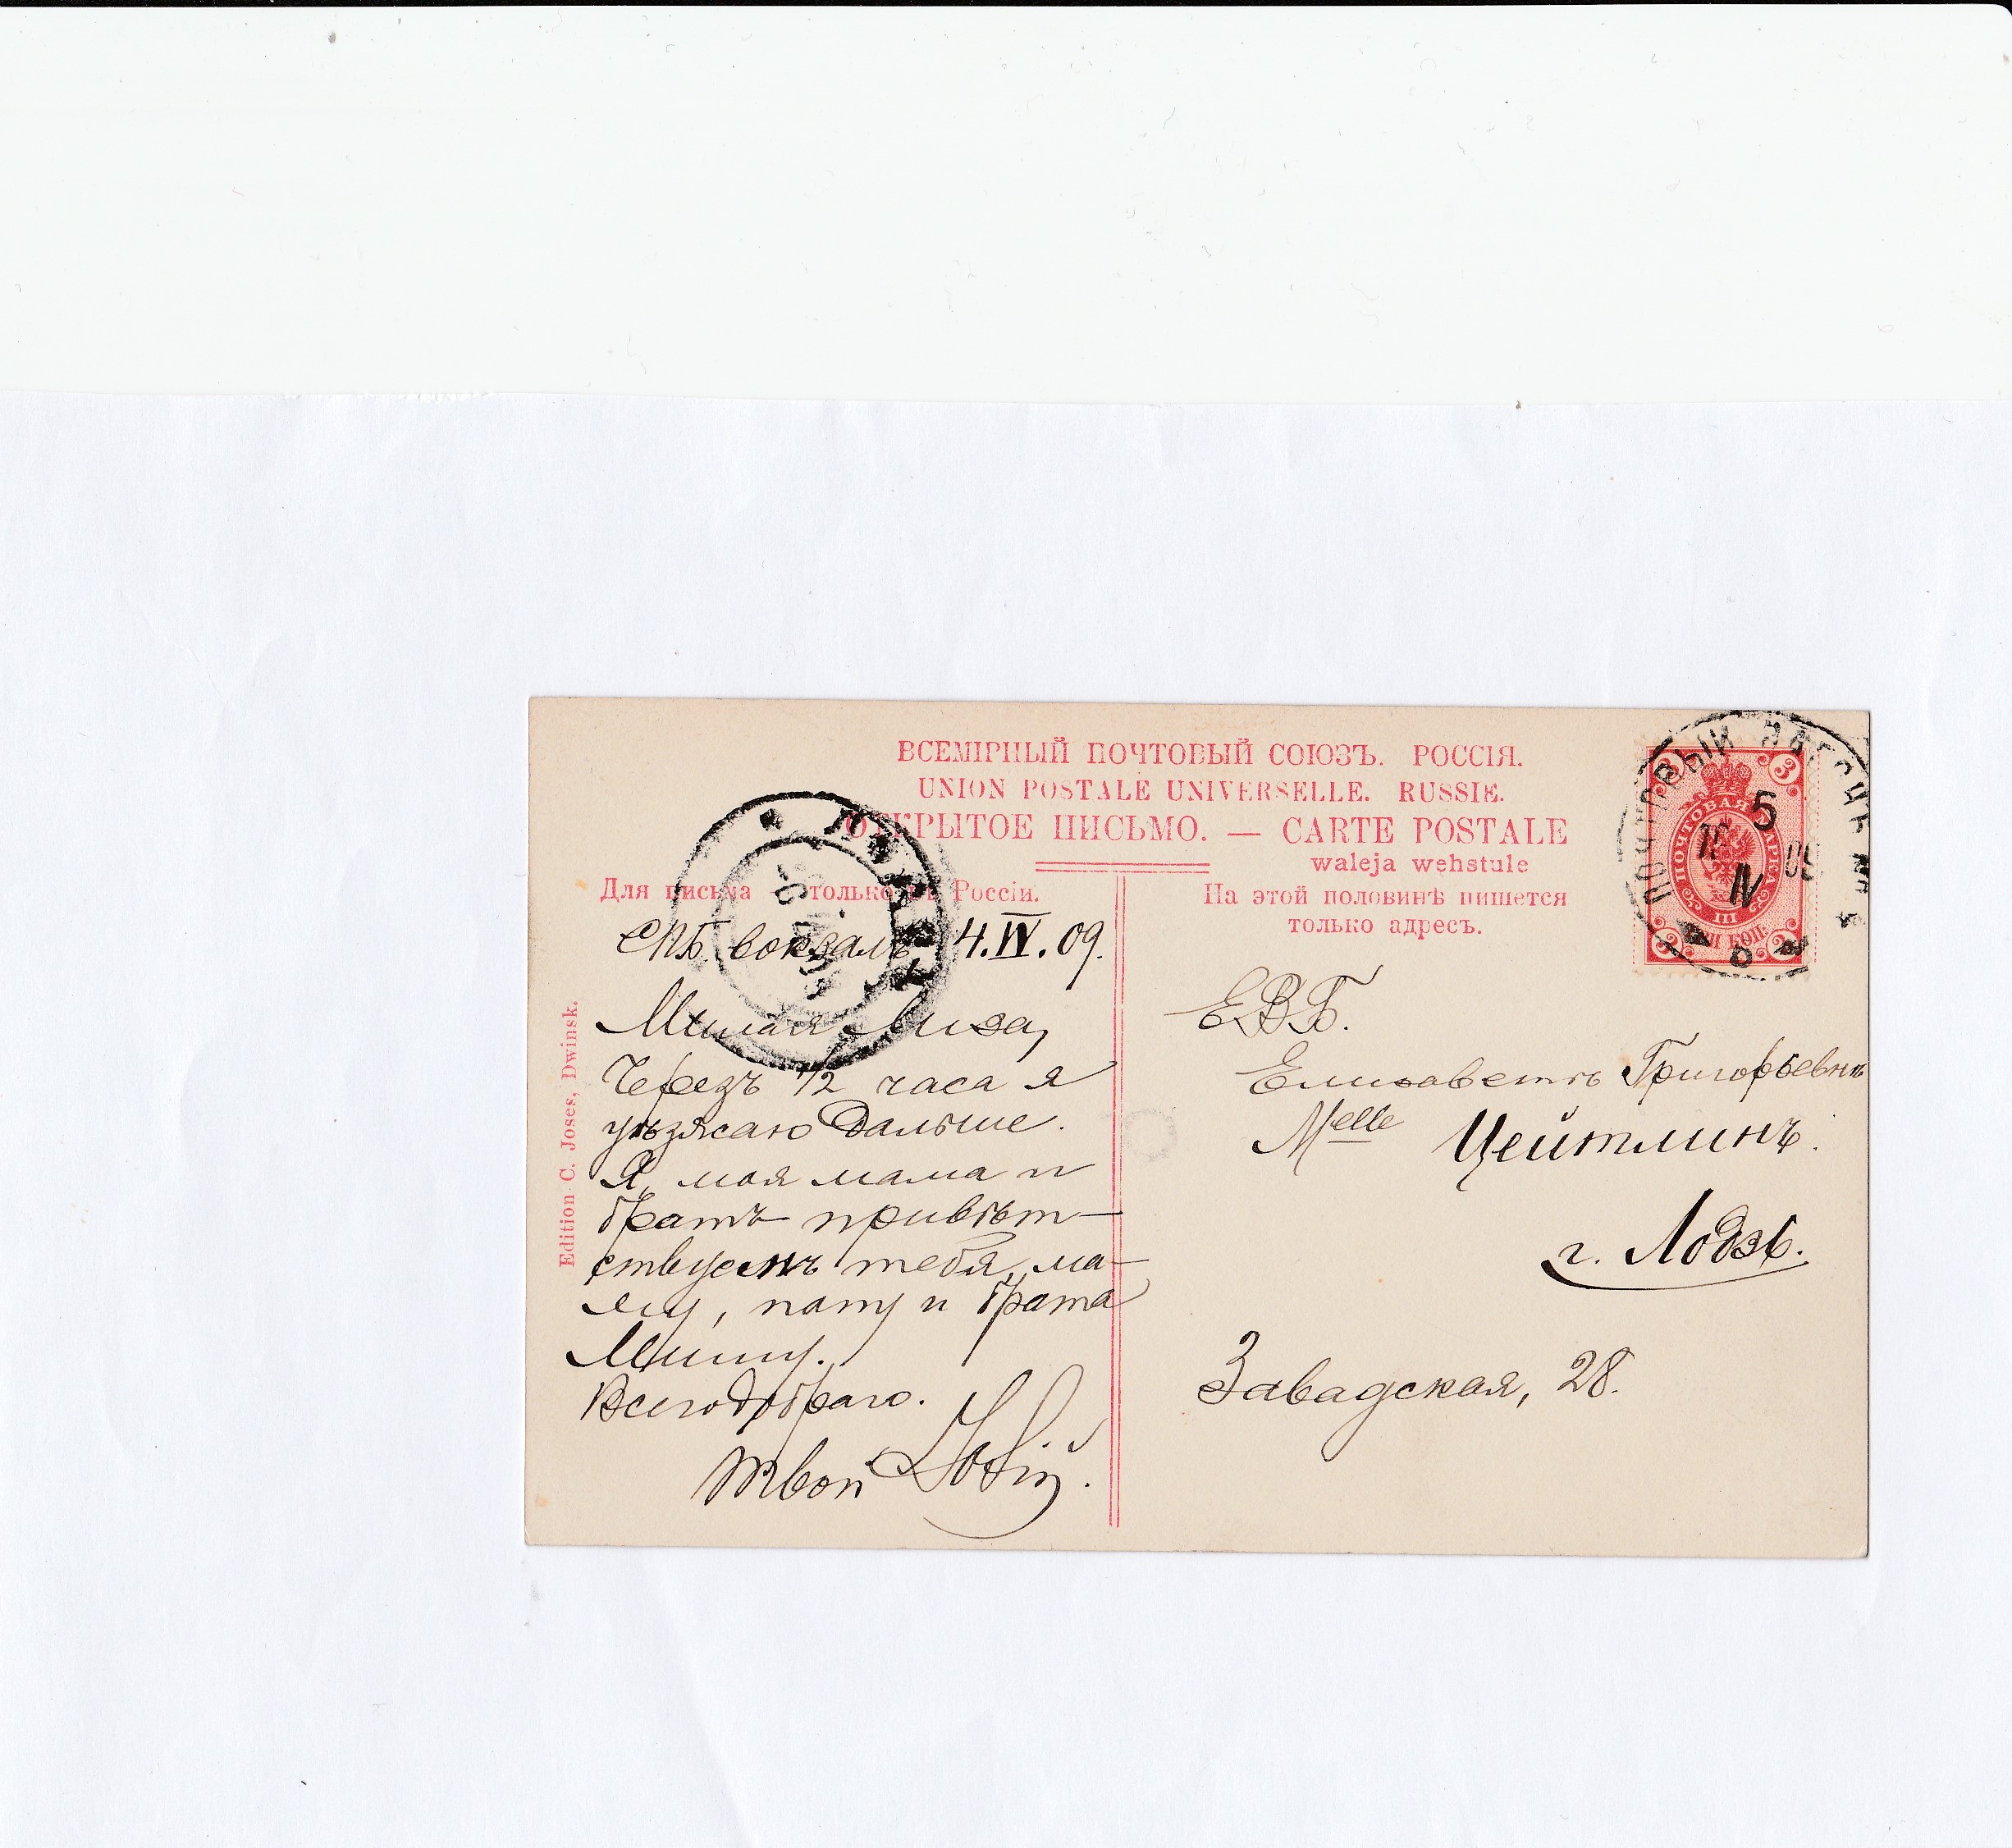 ВСЕМІРНЫЙ ПОЧТОВЫЙ СОЮЗЪ. РОССІЯ.
UNION POSTALE UNIVERSELLE. RUSSIE.
ОТКРЫТОЕ ПИСЬМО. — CARTE POSTALE
waleja wehstule
Для письма — только въ Россіи.
СПБ. вокзалъ, 4.IV.09.
Милая Лиза,
Черезъ 1/2 часа я
уѣзжаю дальше.
Я, моя мама и
братъ привѣт-
ствуемъ тебя, ма-
му, папу и брата
Мишу.
Всего добраго.
Твой
Edition C. Joses, Dwinsk.
На этой половинѣ пишется
только адресъ.
ЕВБ.
Елизаветѣ Григорьевнѣ
Melle Цейтлинъ.
г. Лодзь.
Завадская, 28.
ПОЧТОВЫЙ ВАГОНЪ №
5
IV
09
ПОЧТОВАЯ МАРКА
3
III
ТРИ КОП.